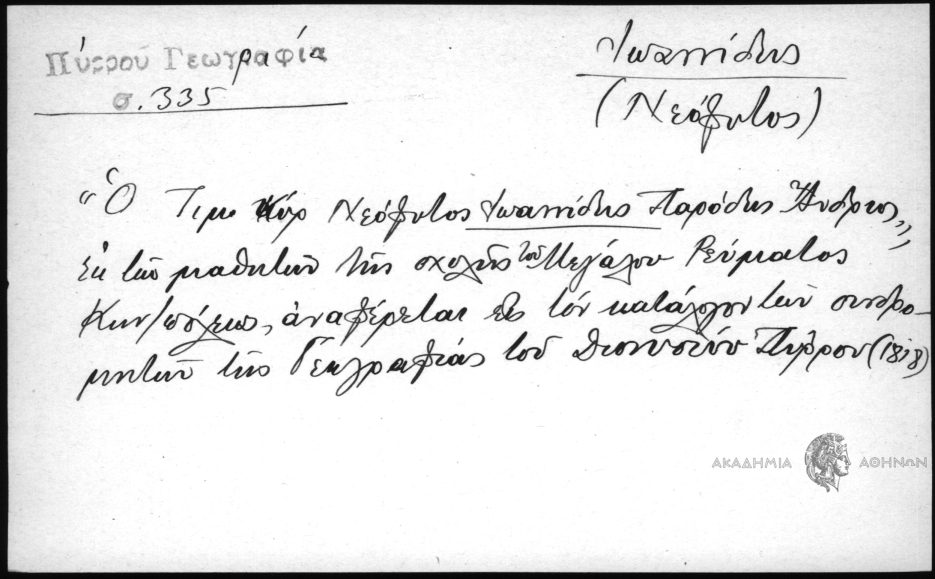 Πύρρου Γεωγραφία
σ. 335
Ἰωαννίδης
(Νεόφυτος)
"Ὁ Τιμ. Κύρ Νεόφυτος Ἰωαννίδης Παρόδης Ἄνδριος,,
ἐκ τῶν μαθητῶν τῆς σχολῆς τοῦ Μεγάλου Ρεύματος
Κων/πόλεως, ἀναφέρεται εἰς τόν κατάλογον τῶν συνδρο-
μητῶν τῆς Γεωγραφίας τοῦ Διονυσίου Πύρρου (1818)
ΑΚΑΔΗΜΙΑ ΑΘΗΝΩΝ